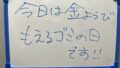 今日は金ようび
もえろゴミの日
です!!